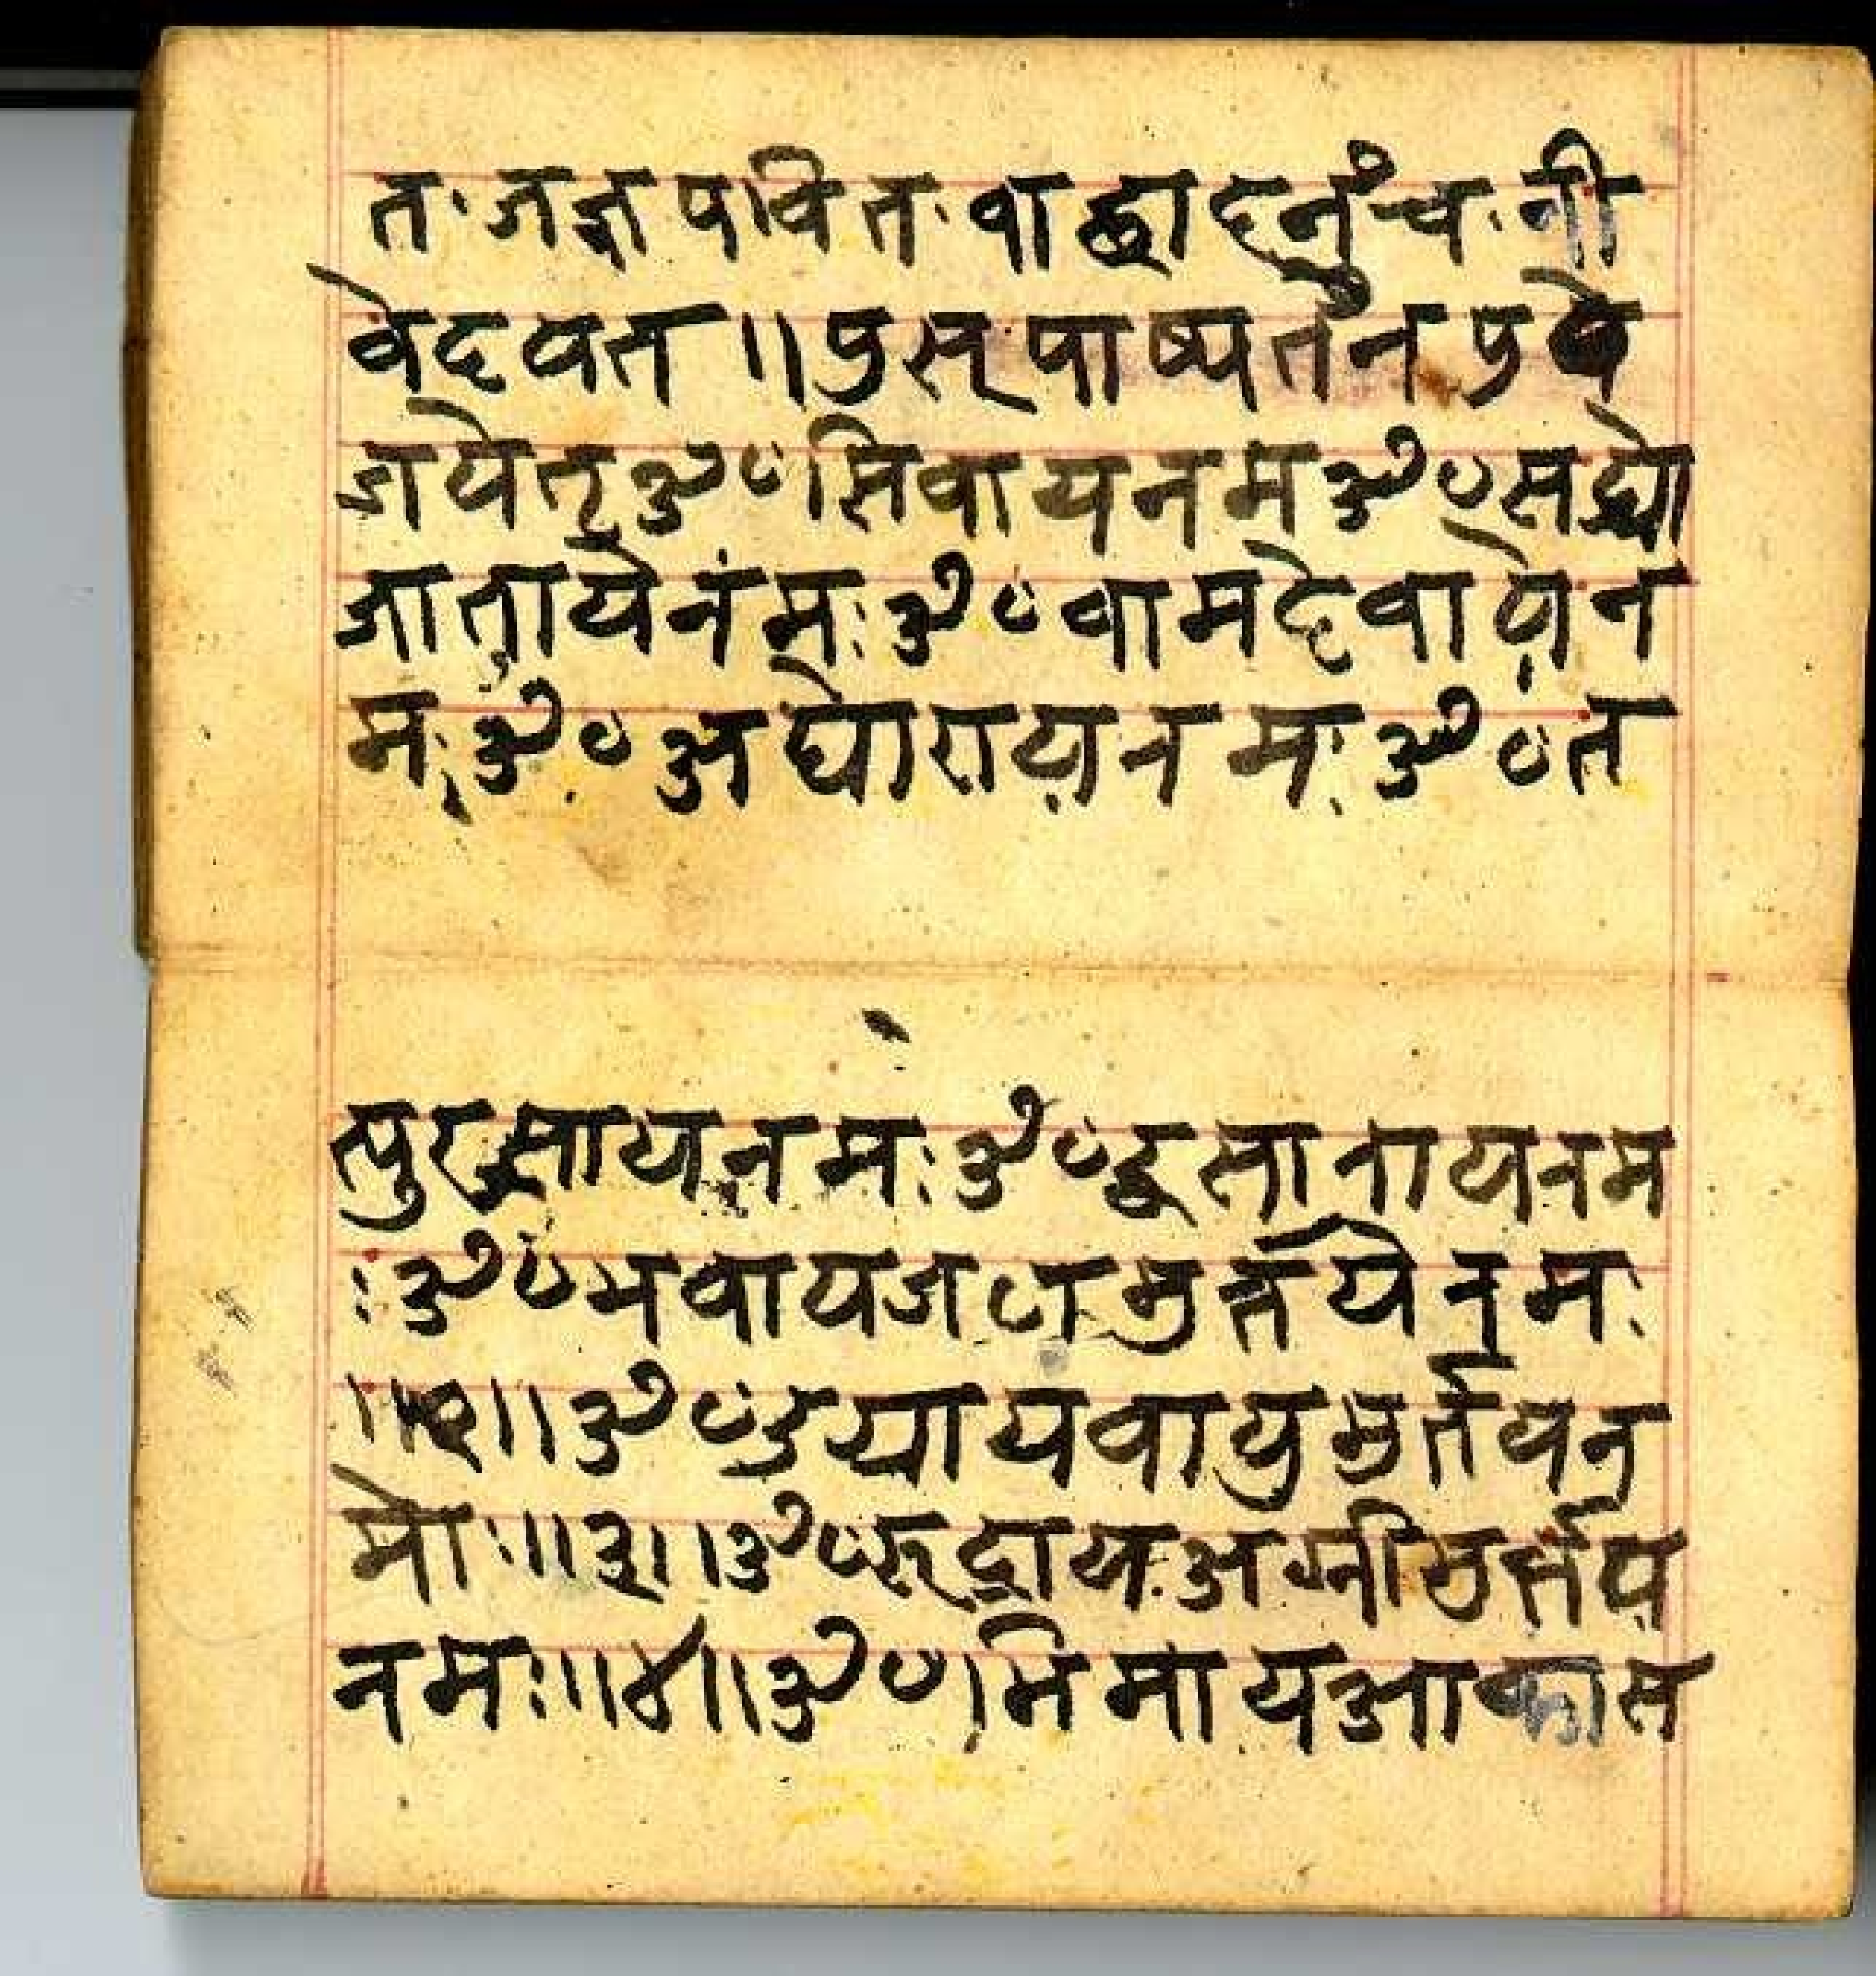 त. जज्ञ पवित. वा द्धादनुंच. नी
वेदवत ॥ पुस्पाष्यतेन पुवे
जयेत् ॐ सिवायनम ॐ सद्यो
जातायेनंमः ॐ वामदेवायेन
मः ॐ अघोरायनमः ॐ त
त्पुरुसायनमः ॐ इसानायनम
ः ॐ भवायजलमुर्तयेनमः
॥२॥ ॐ उग्रायवायुमुर्तयन
मोः ॥३॥ ॐ रूद्राय अग्नीमुर्तय
नमः ॥४॥ ॐ भिमायआकास